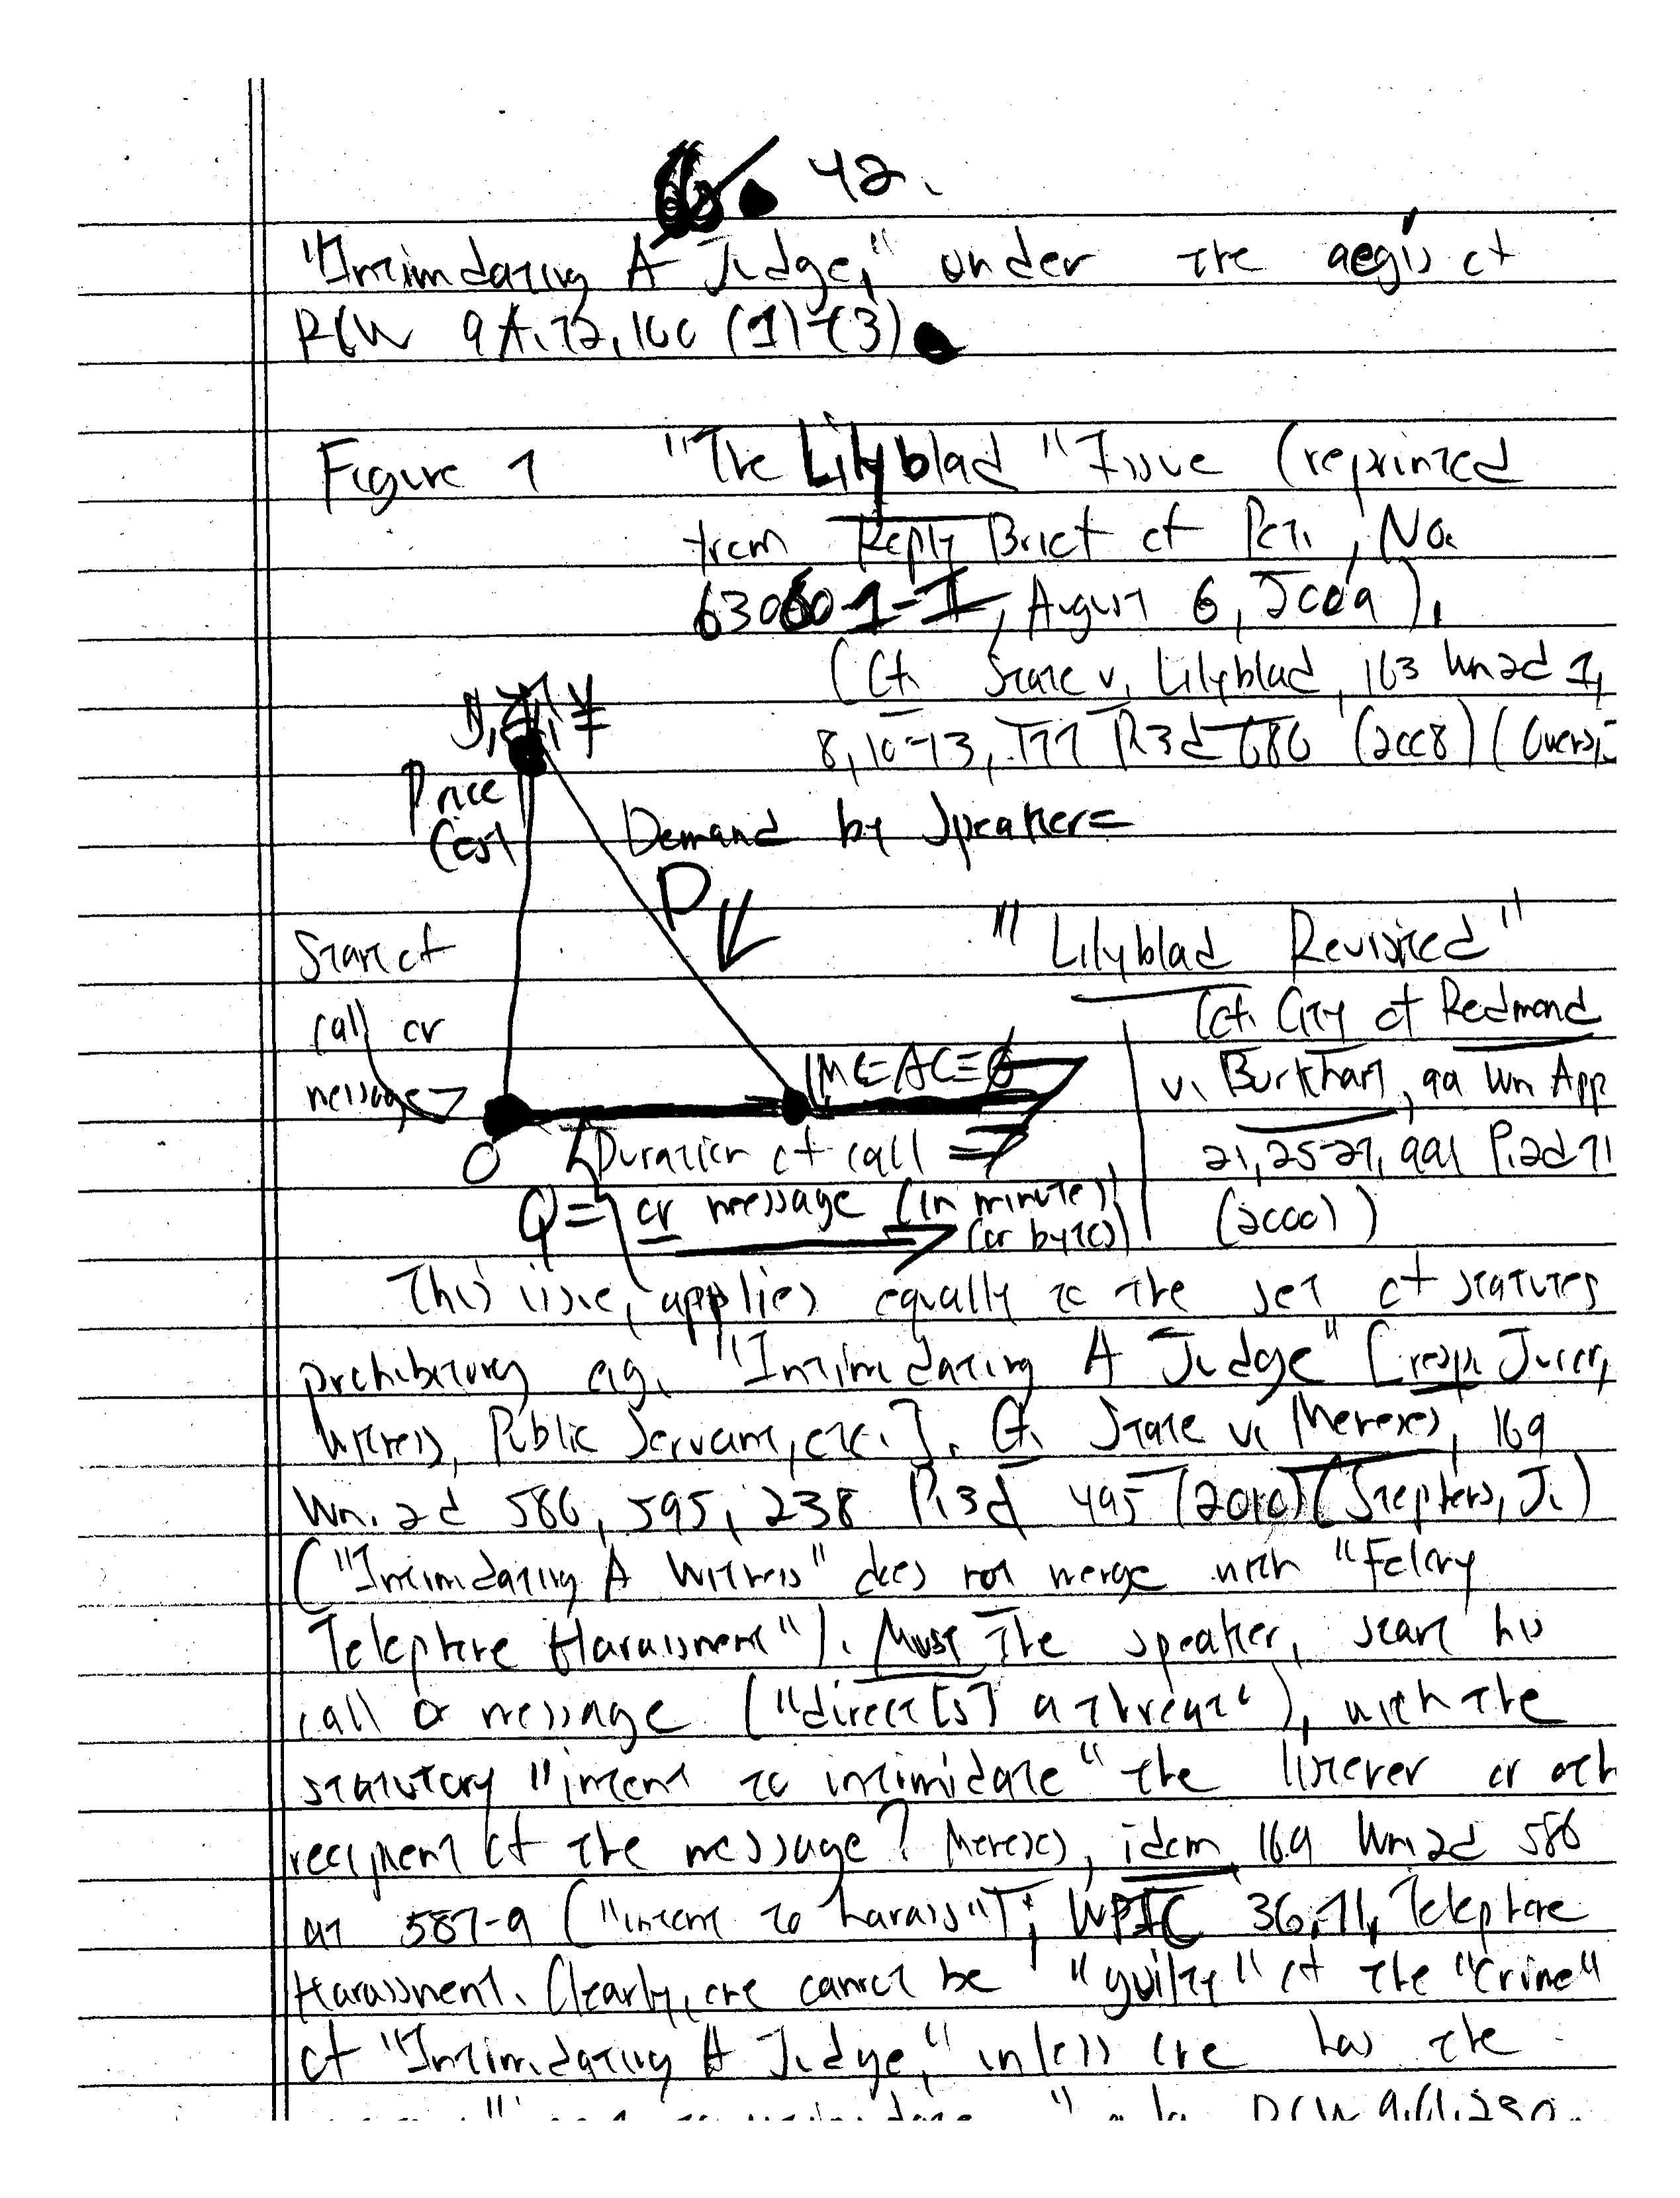 42.
"Intimidating A Judge," under the aegis of
RCW 9A.72.160 (1)-(3)
Figure 1 "The Lilyblad" Issue (reprinted
from Reply Brief of Pet., No.
63060-1-I, August 6, 2009).
(Cf. State v. Lilyblad, 163 Wn2d 1,
8, 10-13, 177 P.3d 686 (2008) (Owens,
Price
Cost
Demand by Speaker =
D
Start of
call or
message
"Lilyblad Revisited"
(cf. City of Redmond
v. Burkhart, 99 Wn App
21, 25-27, 991 P.2d 71
(2000))
MC=AC=0
0
Duration of call
Q = or message (in minutes)
(or bytes)
This issue, applies equally to the set of statutes
prohibiting e.g. "Intimidating A Judge" [resp. Juror,
Witness, Public Servant, etc.]. Cf. State v. Meneses, 169
Wn. 2d 586, 595, 238 P.3d 495 (2010) (Stephens, J.)
("Intimidating A Witness" does not merge with "Felony
Telephone Harassment"). Must the speaker, start his
call or message ("direct[s] a threat"), with the
statutory "intent to intimidate" the listener or oth
recipient of the message? Meneses, idem 169 Wn.2d 586
at 587-9 ("intent to harass"); WPIC 36.71, Telephone
Harassment. Clearly, one cannot be "guilty" of the "crime"
of "Intimidating A Judge," unless one has the
RCW 9.61.230.